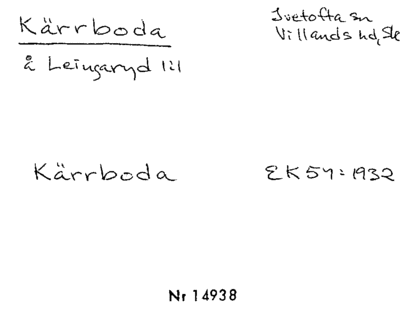 Kärrboda
Ivetofta sn
Villands hd, Sk
å Leingaryd 1:1
Kärrboda
EK 57: 1932
Nr 14938